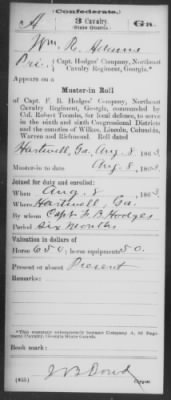 (Confederate.)
A 3 Cavalry. Ga.
State Guards.
Wm. R. Adams
Pri, Capt. Hodges' Company, Northeast
Cavalry Regiment, Georgia.*
Appears on a
Muster-in Roll
of Capt. F. B. Hodges' Company, Northeast
Cavalry Regiment, Georgia, commanded by
Col. Robert Toombs, for local defence, to serve
in the ninth and sixth Congressional Districts
and the counties of Wilkes, Lincoln, Columbia,
Warren and Richmond. Roll dated
Hartwell, Ga, Aug. 8, 1863.
Muster-in to date Aug. 8, 1863.
Joined for duty and enrolled:
When Aug. 8, 1863.
Where Hartwell, Ga.
By whom Capt. F B Hodges
Period six months
Valuation in dollars of
Horse 650; horse equipments 50.
Present or absent Present
Remarks:
*This company subsequently became Company A, 3d Regiment Cavalry, Georgia State Guards.
Book mark:
Copyist.